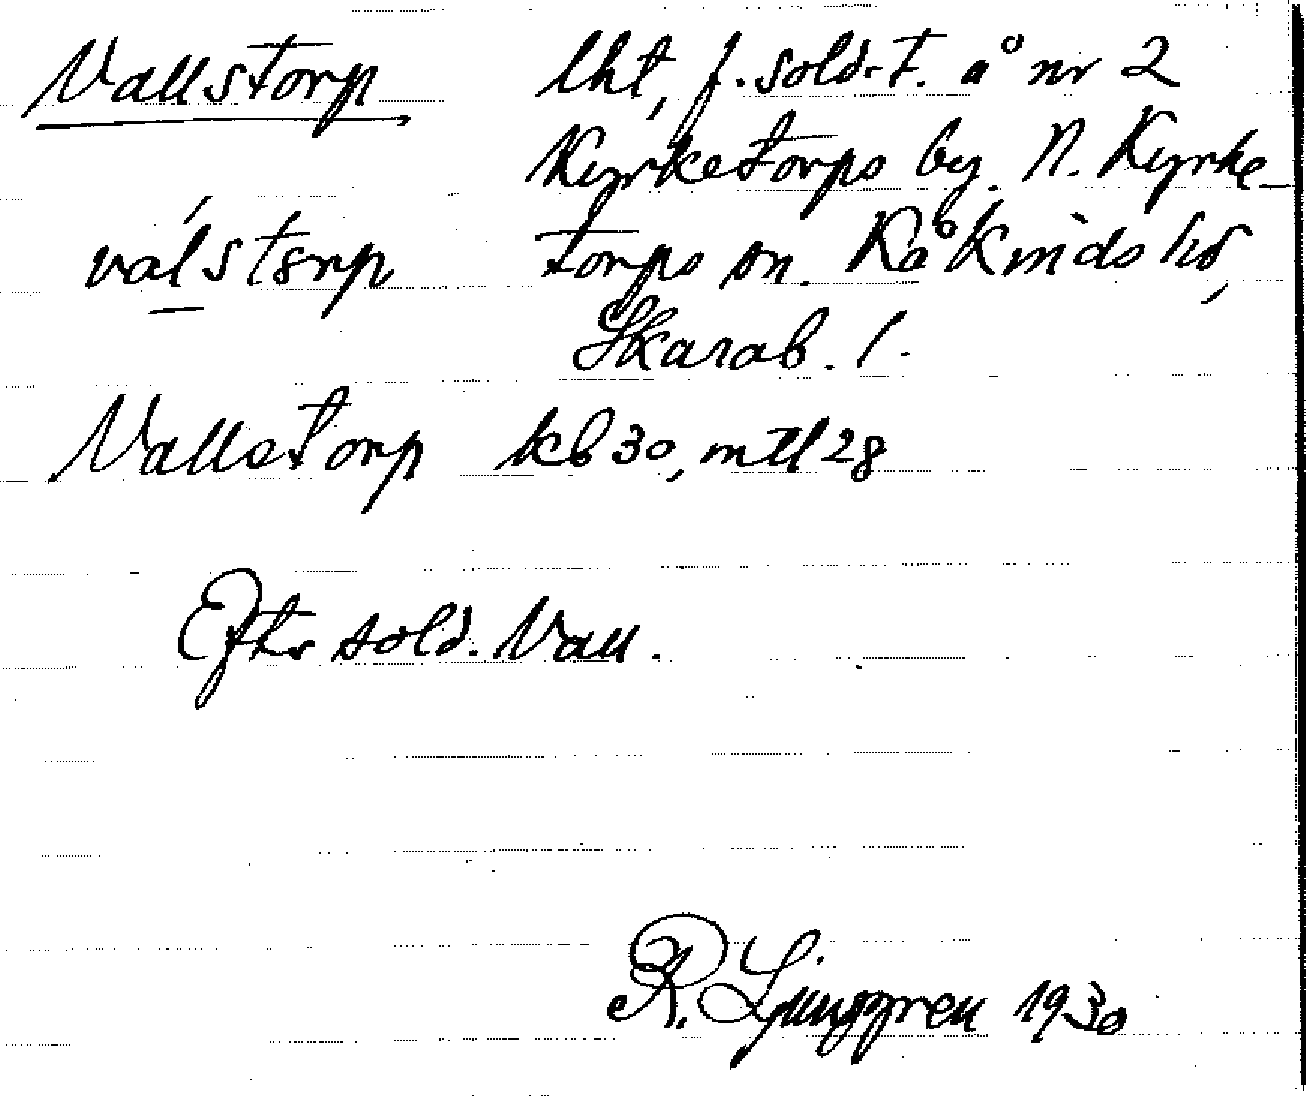 Vallstorp lht, f. sold.t. å nr 2
Kyrketorps by. N. Kyrke-
válstorp torps sn. Kåkinds hd,
Skarab. l.
Vallstorp kb 30, mtl 28
Efter sold. Vall.
R. Ljunggren 1930